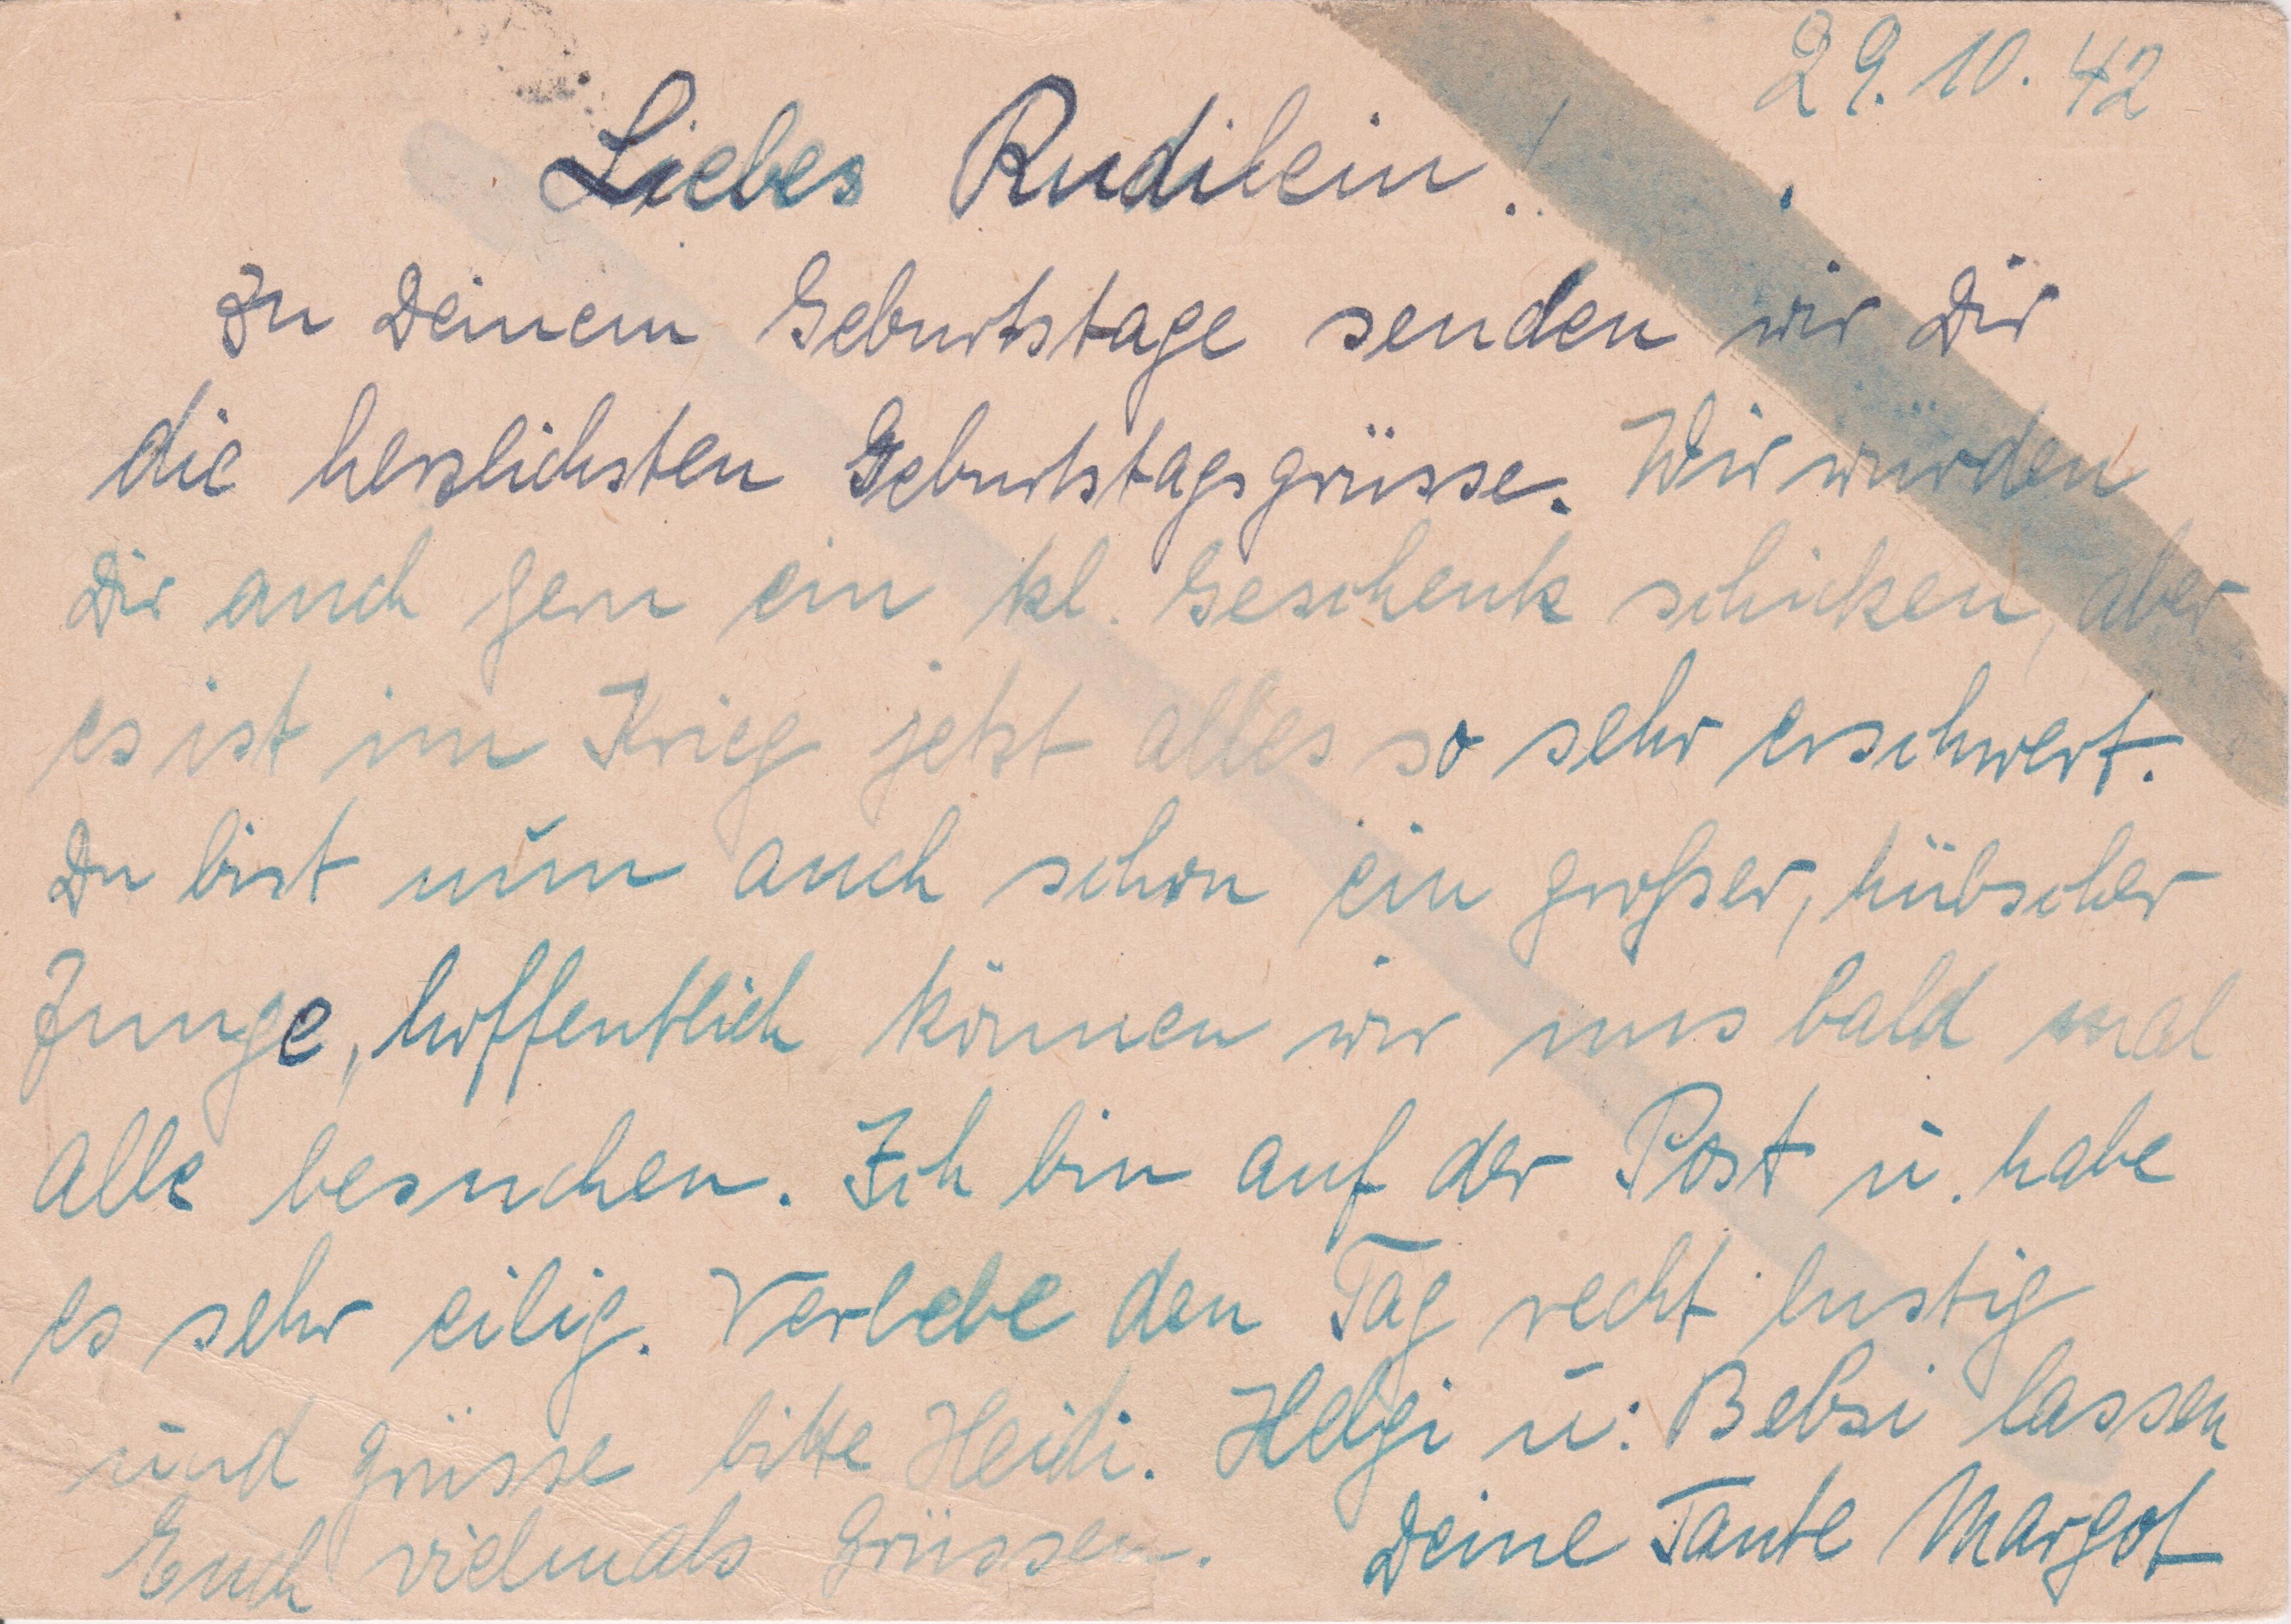 29.10.42
Liebes Rudilein!
Zu Deinem Geburtstage senden wir Dir
die herzlichsten Geburtstagsgrüsse. Wir würden
Dir auch gern ein kl. Geschenk schicken, aber
es ist im Krieg jetzt alles so sehr erschwert.
Du bist nun auch schon ein großer, hübscher
Junge, hoffentlich können wir uns bald mal
alle besuchen. Ich bin auf der Post u. habe
es sehr eilig. Verlebe den Tag recht lustig
und grüsse bitte Heidi. Helgi u. Bebsi lassen
Euch vielmals Grüssen. Deine Tante Margot